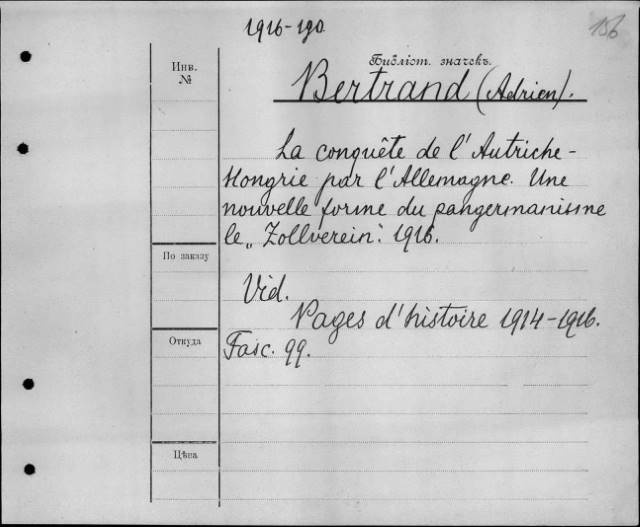 1916-190
156
Библіот. значекъ.
Инв.
№
Bertrand (Adrien).
La conquête de l'Autriche-
Hongrie par l'Allemagne. Une
nouvelle forme du pangermanisme
le „Zollverein". 1916.
По заказу
Vid.
Pages d'histoire 1914-1916.
Откуда
Fasc. 99.
Цѣна